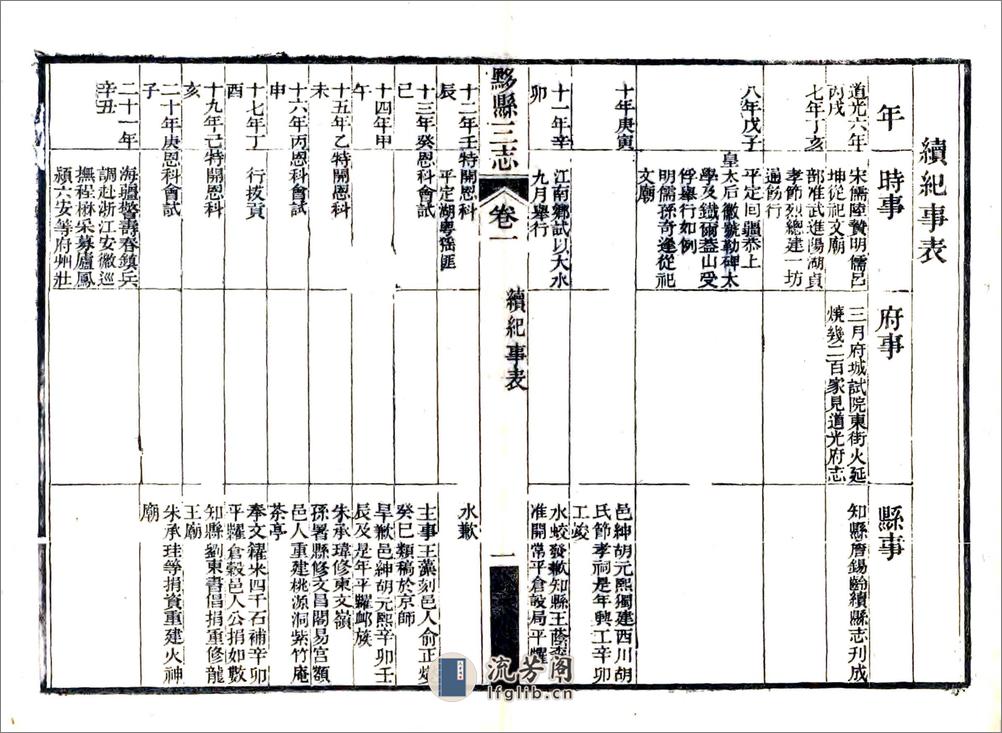 續紀事表
年
時事
府事
縣事
道光六年
丙戌
宋儒陸贄明儒呂
坤從祀文廟
三月府城試院東街火延
燒幾二百家見道光府志
知縣詹錫齡續縣志刊成
七年丁亥
部准武進陽湖貞
孝節烈總建一坊
通飭行
八年戊子
平定回疆恭上
皇太后徽號勒碑太
學及鐵爾葢山受
俘舉行如例
明儒孫奇逢從祀
文廟
十年庚寅
邑紳胡元熙獨建西川胡
氏節孝祠是年興工辛卯
工竣
十一年辛
卯
江南鄉試以大水
九月舉行
水蛟發歉知縣王蔭
准開常平倉設局平糶
黟縣三志
卷一
續紀事表
一
十二年壬
辰
特開恩科
平定湖粵猺匪
水歉
十三年癸
巳
恩科會試
主事王藻刻邑人俞正燮
癸巳類稿於京師
十四年甲
午
旱歉邑紳胡元熙辛卯壬
辰及是年平糶邮族
十五年乙
未
特開恩科
朱承瑋修東文嶺
十六年丙
申
恩科會試
孫署縣修文昌閣易宮額
邑人重建桃源洞紫竹庵
茶亭
十七年丁
酉
行拔貢
奉文糴米四千石補辛卯
平糶倉穀邑人公捐如數
十九年己
亥
特開恩科
知縣劉東書倡捐重修龍
王廟
二十年庚
子
恩科會試
朱承珪等捐資重建火神
廟
二十一年
辛丑
海疆警壽春鎮兵
調赴浙江安徽巡
撫程楙采募廬鳳
潁六安等府州壯
流芳阁
lfglib.cn